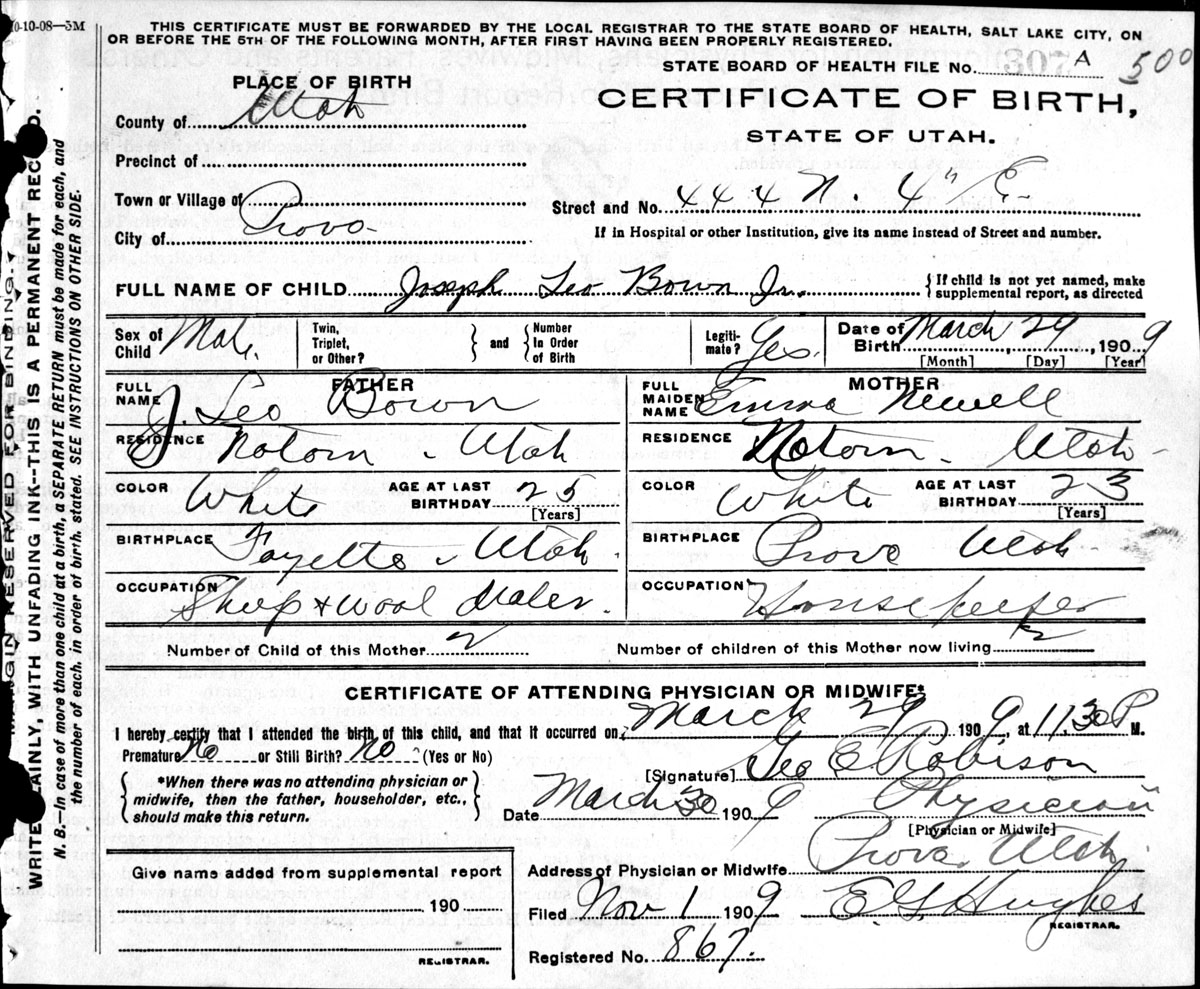 10-10-08—5M
THIS CERTIFICATE MUST BE FORWARDED BY THE LOCAL REGISTRAR TO THE STATE BOARD OF HEALTH, SALT LAKE CITY, ON
OR BEFORE THE 5TH OF THE FOLLOWING MONTH, AFTER FIRST HAVING BEEN PROPERLY REGISTERED.
STATE BOARD OF HEALTH FILE No. 307 A 500
PLACE OF BIRTH
CERTIFICATE OF BIRTH,
STATE OF UTAH.
County of Utah
Precinct of
Town or Village of
Street and No. 444 N. 4" E.
City of Provo
If in Hospital or other Institution, give its name instead of Street and number.
FULL NAME OF CHILD Joseph Leo Bown Jr. {If child is not yet named, make
supplemental report, as directed
Sex of Child Male. Twin, Triplet, or Other? } and { Number In Order of Birth Legiti-mate? Yes. Date of Birth March 29, 1909
[Month] [Day] [Year]
FATHER
FULL NAME J. Leo Bown
MOTHER
FULL MAIDEN NAME Emma Newell
RESIDENCE Notom - Utah
RESIDENCE Notom - Utah -
COLOR White AGE AT LAST BIRTHDAY 25 [Years]
COLOR White AGE AT LAST BIRTHDAY 23 [Years]
BIRTHPLACE Fayette - Utah.
BIRTHPLACE Provo Utah -
OCCUPATION Sheep & Wool Dealer.
OCCUPATION Housekeeper
Number of Child of this Mother 2
Number of children of this Mother now living 2
CERTIFICATE OF ATTENDING PHYSICIAN OR MIDWIFE*
I hereby certify that I attended the birth of this child, and that it occurred on March 29 1909, at 11.30 P M.
Premature No or Still Birth? No (Yes or No)
{ *When there was no attending physician or
midwife, then the father, householder, etc.,
should make this return. }
[Signature] Geo E Robison
Date March 30 1909 Physician
[Physician or Midwife]
Give name added from supplemental report
190
REGISTRAR.
Address of Physician or Midwife Provo, Utah
Filed Nov 1 1909 E. G. Hughes
REGISTRAR.
Registered No. 867.
MARGIN RESERVED FOR BINDING.
WRITE PLAINLY, WITH UNFADING INK--THIS IS A PERMANENT RECORD.
N. B.—In case of more than one child at a birth, a SEPARATE RETURN must be made for each, and
the number of each. in order of birth. stated. SEE INSTRUCTIONS ON OTHER SIDE.